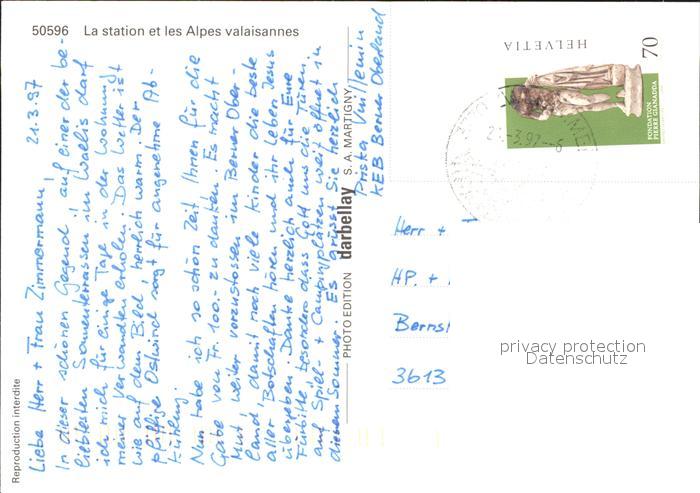 50596 La station et les Alpes valaisannes
21.3.97
Liebe Herr + Frau Zimmermann!
In dieser schönen Gegend auf einer der be-
liebtesten Sonnenterrassen im Wallis darf
ich mich für einige Tage in der Wohnung
meiner Verwandten erholen. Das Wetter ist
wie auf dem Bild, herrlich warm. Der
pfiffige Ostwind sorgt für angenehme Ab-
kühlung.
Nun habe ich so schön Zeit Ihnen für die
Gabe von Fr. 100.- zu danken. Es macht
Mut weiter vorzustossen im Berner Ober-
land, damit noch viele Kinder die beste
aller Botschaften hören und ihr Leben Jesus
übergeben. Danke herzlich auch für Eure
Fürbitte besonders dass Gott uns die Türen
auf Spiel- + Campingplätzen weit öffnet in
diesem Sommer. Es grüsst Sie herzlich
Priska Vuillemin
KEB Berner Oberland
Reproduction interdite
PHOTO EDITION darbellay S. A. MARTIGNY
HELVETIA
70
FONDATION
PIERRE GIANADDA
Herr +
HP. +
Berns
3613
privacy protection
Datenschutz